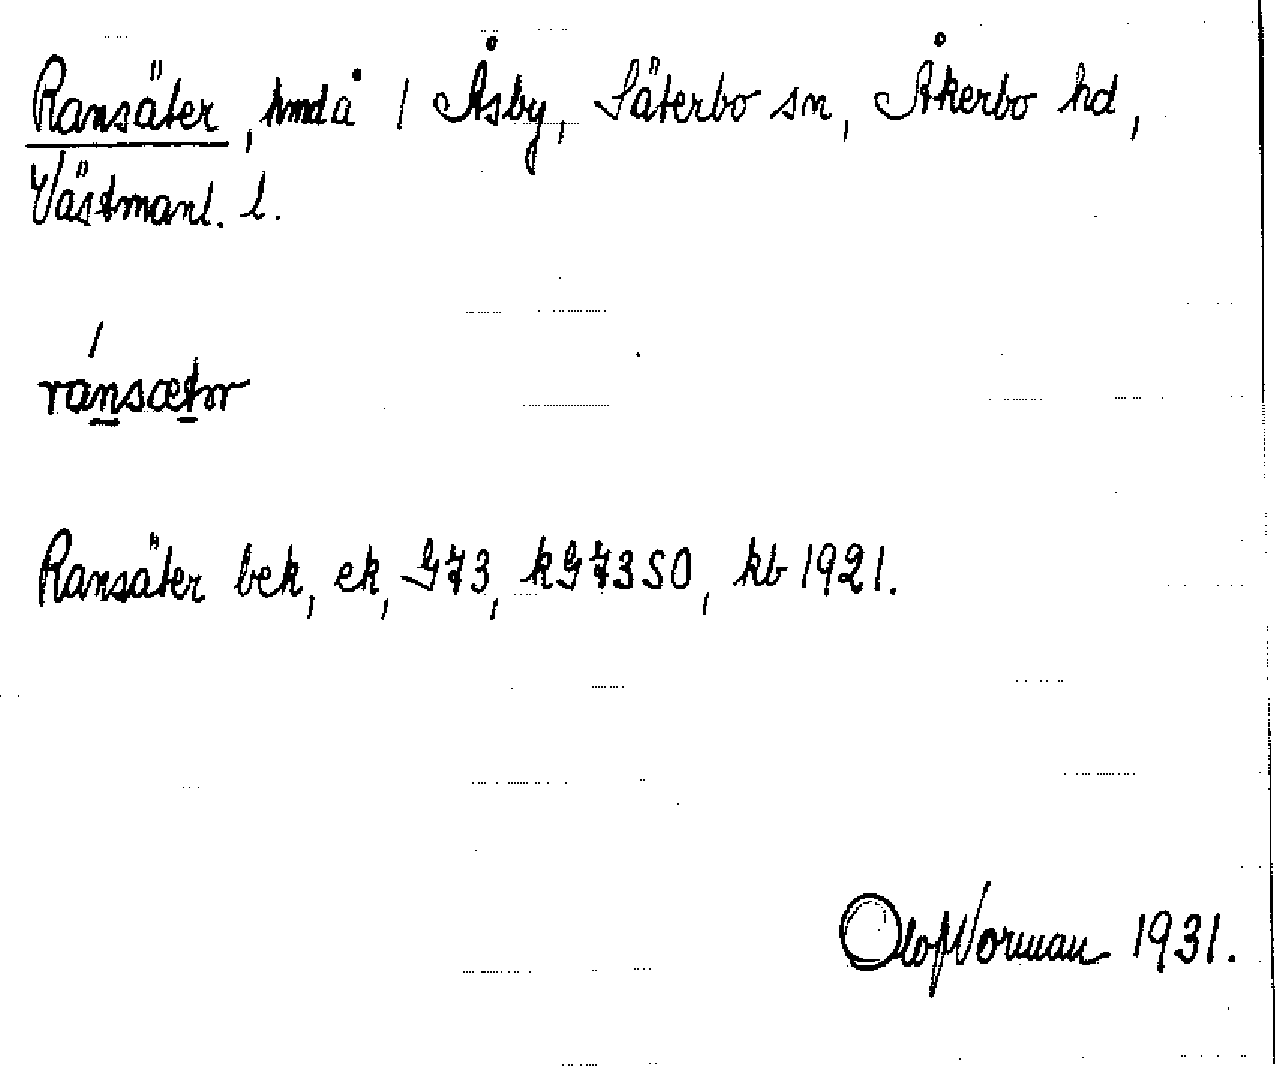 Ransäter, hmdå i Åsby, Säterbo sn, Åkerbo hd,
Västmanl. l.
ránsætər
Ransäter bek, ek, G73, kG73SO, kb 1921.
Olof Norman 1931.